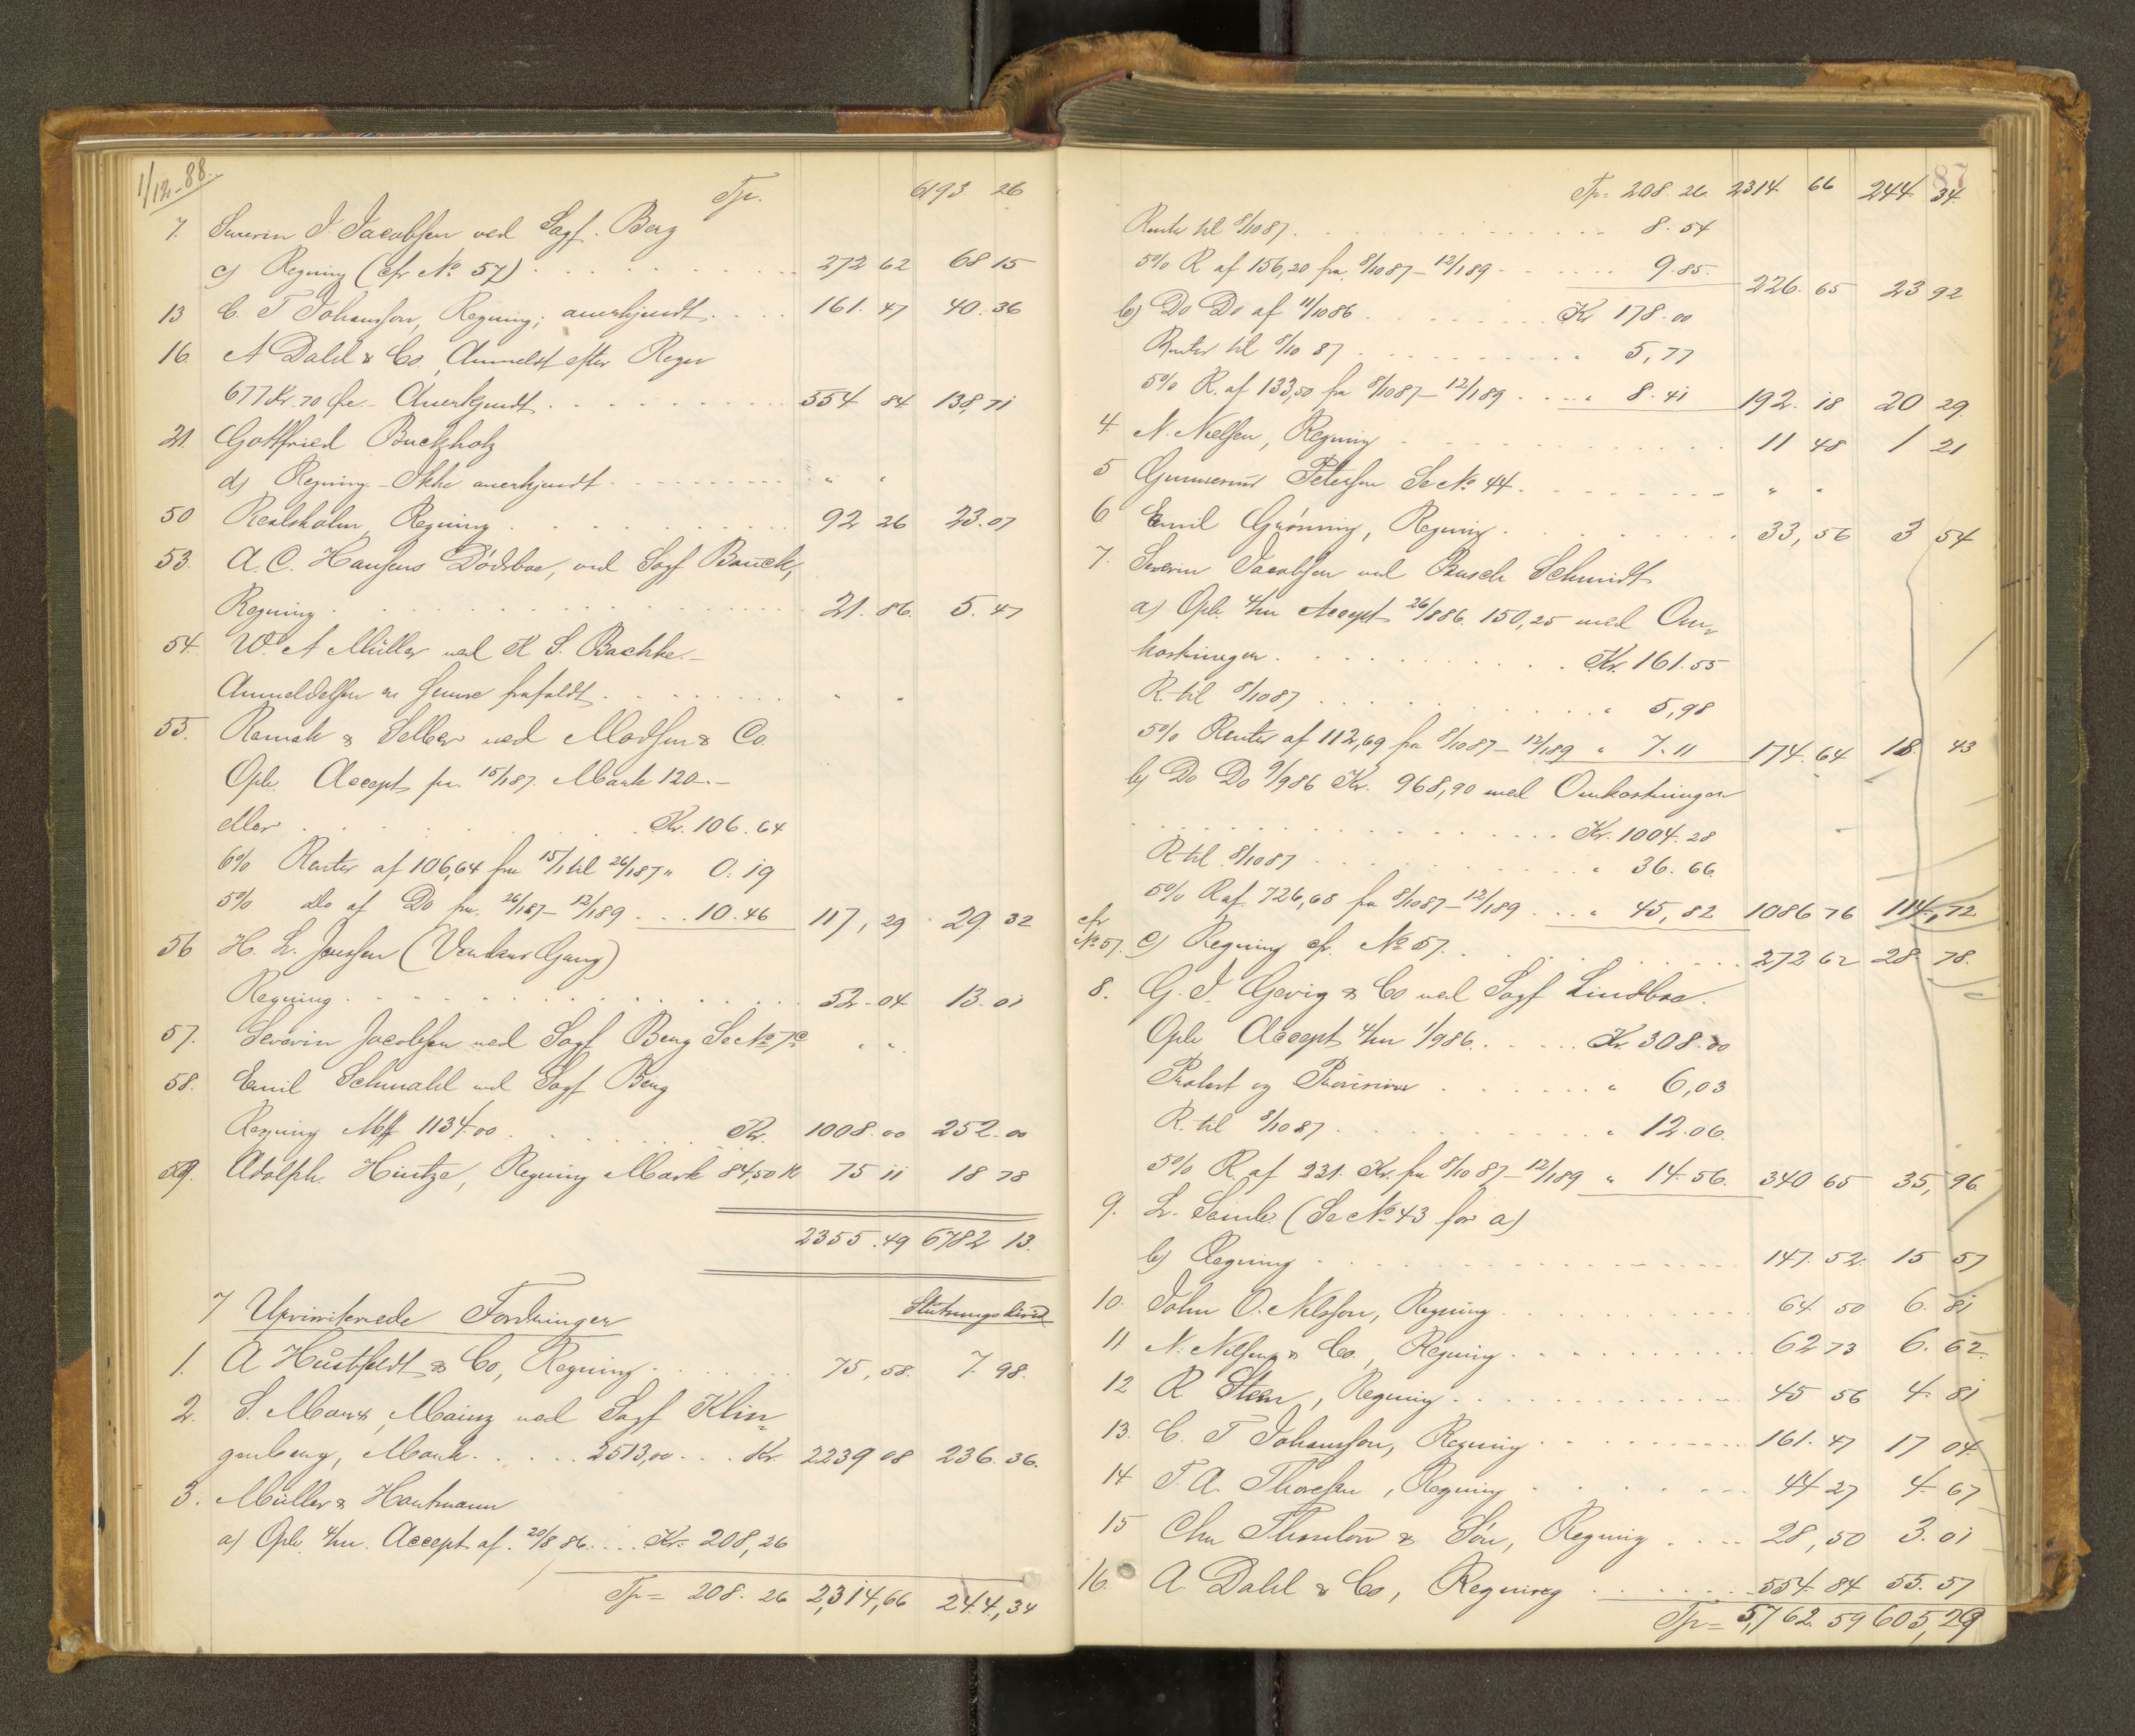 1/12-88.
Tp. 6193 26
7. Severin J. Jacobsen ved Sagf. Berg
c) Regning (cfr No 57) 272 62 68 15
13 C. T. Johansson, Regning; anerkjendt 161. 47 40. 36
16. A Dahl & Co. Anmeldt efter Regn
677 Kr. 70 Øre - Anerkjendt 554 84 138,71
21. Gottfried Buckholz
d) Regning - Ikke anerkjendt " "
50 Realskolen, Regning 92 26 23.07
53. A. C. Hansens Dödsbo, ved Sagf Bauck,
Regning 21. 86. 5. 47
54. W. A Müller ved K S. Bachke. -
Anmeldelsen er senere frafaldt " "
55. Ramak & Selber ved Madsen & Co.
Opl. Accept pr. 15/1 87. Mark 120.-
eller Kr. 106. 64
6% Renter af 106,64 fra 15/1 til 26/1 87 " 0. 19
5% do af Do fra 26/1 87 - 12/1 89 10. 46 117, 29 29. 32
56 H. L. Jenssen (Vendens Gang)
Regning 52-04 13.01
57. Severin Jacobsen ved Sagf Berg Se No 7c " "
58. Emil Schmahl ved Sagf Berg
Regning Mk 1134.00 Kr. 1008.00 252.00
59. Adolph Hintze, Regning Mark 84,50 Kr 75 11 18 78
2355.49 6782 13.
7 Uprioriterede Fordringer Slutningsdivid
1. A Huitfeldt & Co, Regning 75, 58. 7. 98.
2. S. Marx, Mainz ved Sagf Klin=
genberg, Mark 2513,00 Kr. 2239 08 236. 36.
3. Müller & Hartmann
a) Opl. 4/m. Accept af. 20/8 86. Kr. 208,26
Tp= 208. 26 2,314,66 244,34
87
Tp= 208. 26. 2314. 66 244. 34.
Renter til 8/10 87 8. 54
5% R. af 156,20 fra 8/10 87 - 12/1 89 9.85. 226. 65 23 92
b) Do Do af 11/10 86 Kr 178.00
Renter til 8/10 87 " 5,77
5% R. af 133,50 fra 8/10 87 - 12/1 89 " 8. 41 192. 18 20 29.
4. N. Nielsen, Regning 11 48 1 21
5 Gunnerius Petersen Se No 44. " "
6 Emil Grönning, Regning 33,56 3 54
7. Severin Jacobsen ved Busch Schmidt
a) Opl. 4/m Accept 26/8 86. 150,25 med Om=
kostninger Kr. 161.55
R. til 8/10 87 " 5,98
5% Renter af 112,69 fra 8/10 87 - 12/1 89 " 7.11 174.64 18. 43
b) Do Do 9/9 86 Kr. 968,90 med Omkostninger
Kr. 1004.28
R. til 8/10 87 " 36.66.
5% R af 726,68 fra 8/10 87 - 12/1 89 " 45,82 1086 76 114,72
cfr No 57. c) Regning cfr. No 57. 272 62 28 78.
8. G. J. Gevig & Co ved Sagf Lindboe.
Opl Accept 4/m 1/9 86. Kr. 308.00
Protest og Provision " 6,03
R. til 8/10 87 " 12.06.
5% R. af 231. Kr. fra 8/10 87 - 12/1 89 " 14.56. 340 65 35,96
9. L. Samb. (Se No 43 for a)
b) Regning 147. 52. 15 57
10. John O. Nelsson, Regning 64 50 6. 81
11 N. Nielsen & Co., Regning 62 73 6. 62.
12 R Steen, Regning 45 56 4. 81
13. C. T Johansson, Regning 161. 47 17 04.
14 T. A. Thoresen, Regning 44 27 4. 67
15 Chr Thaulow & Sön, Regning 28,50 3. 01
16. A. Dahl & Co, Regning 554.84 55. 57
Tp= 5,762.59 605,29